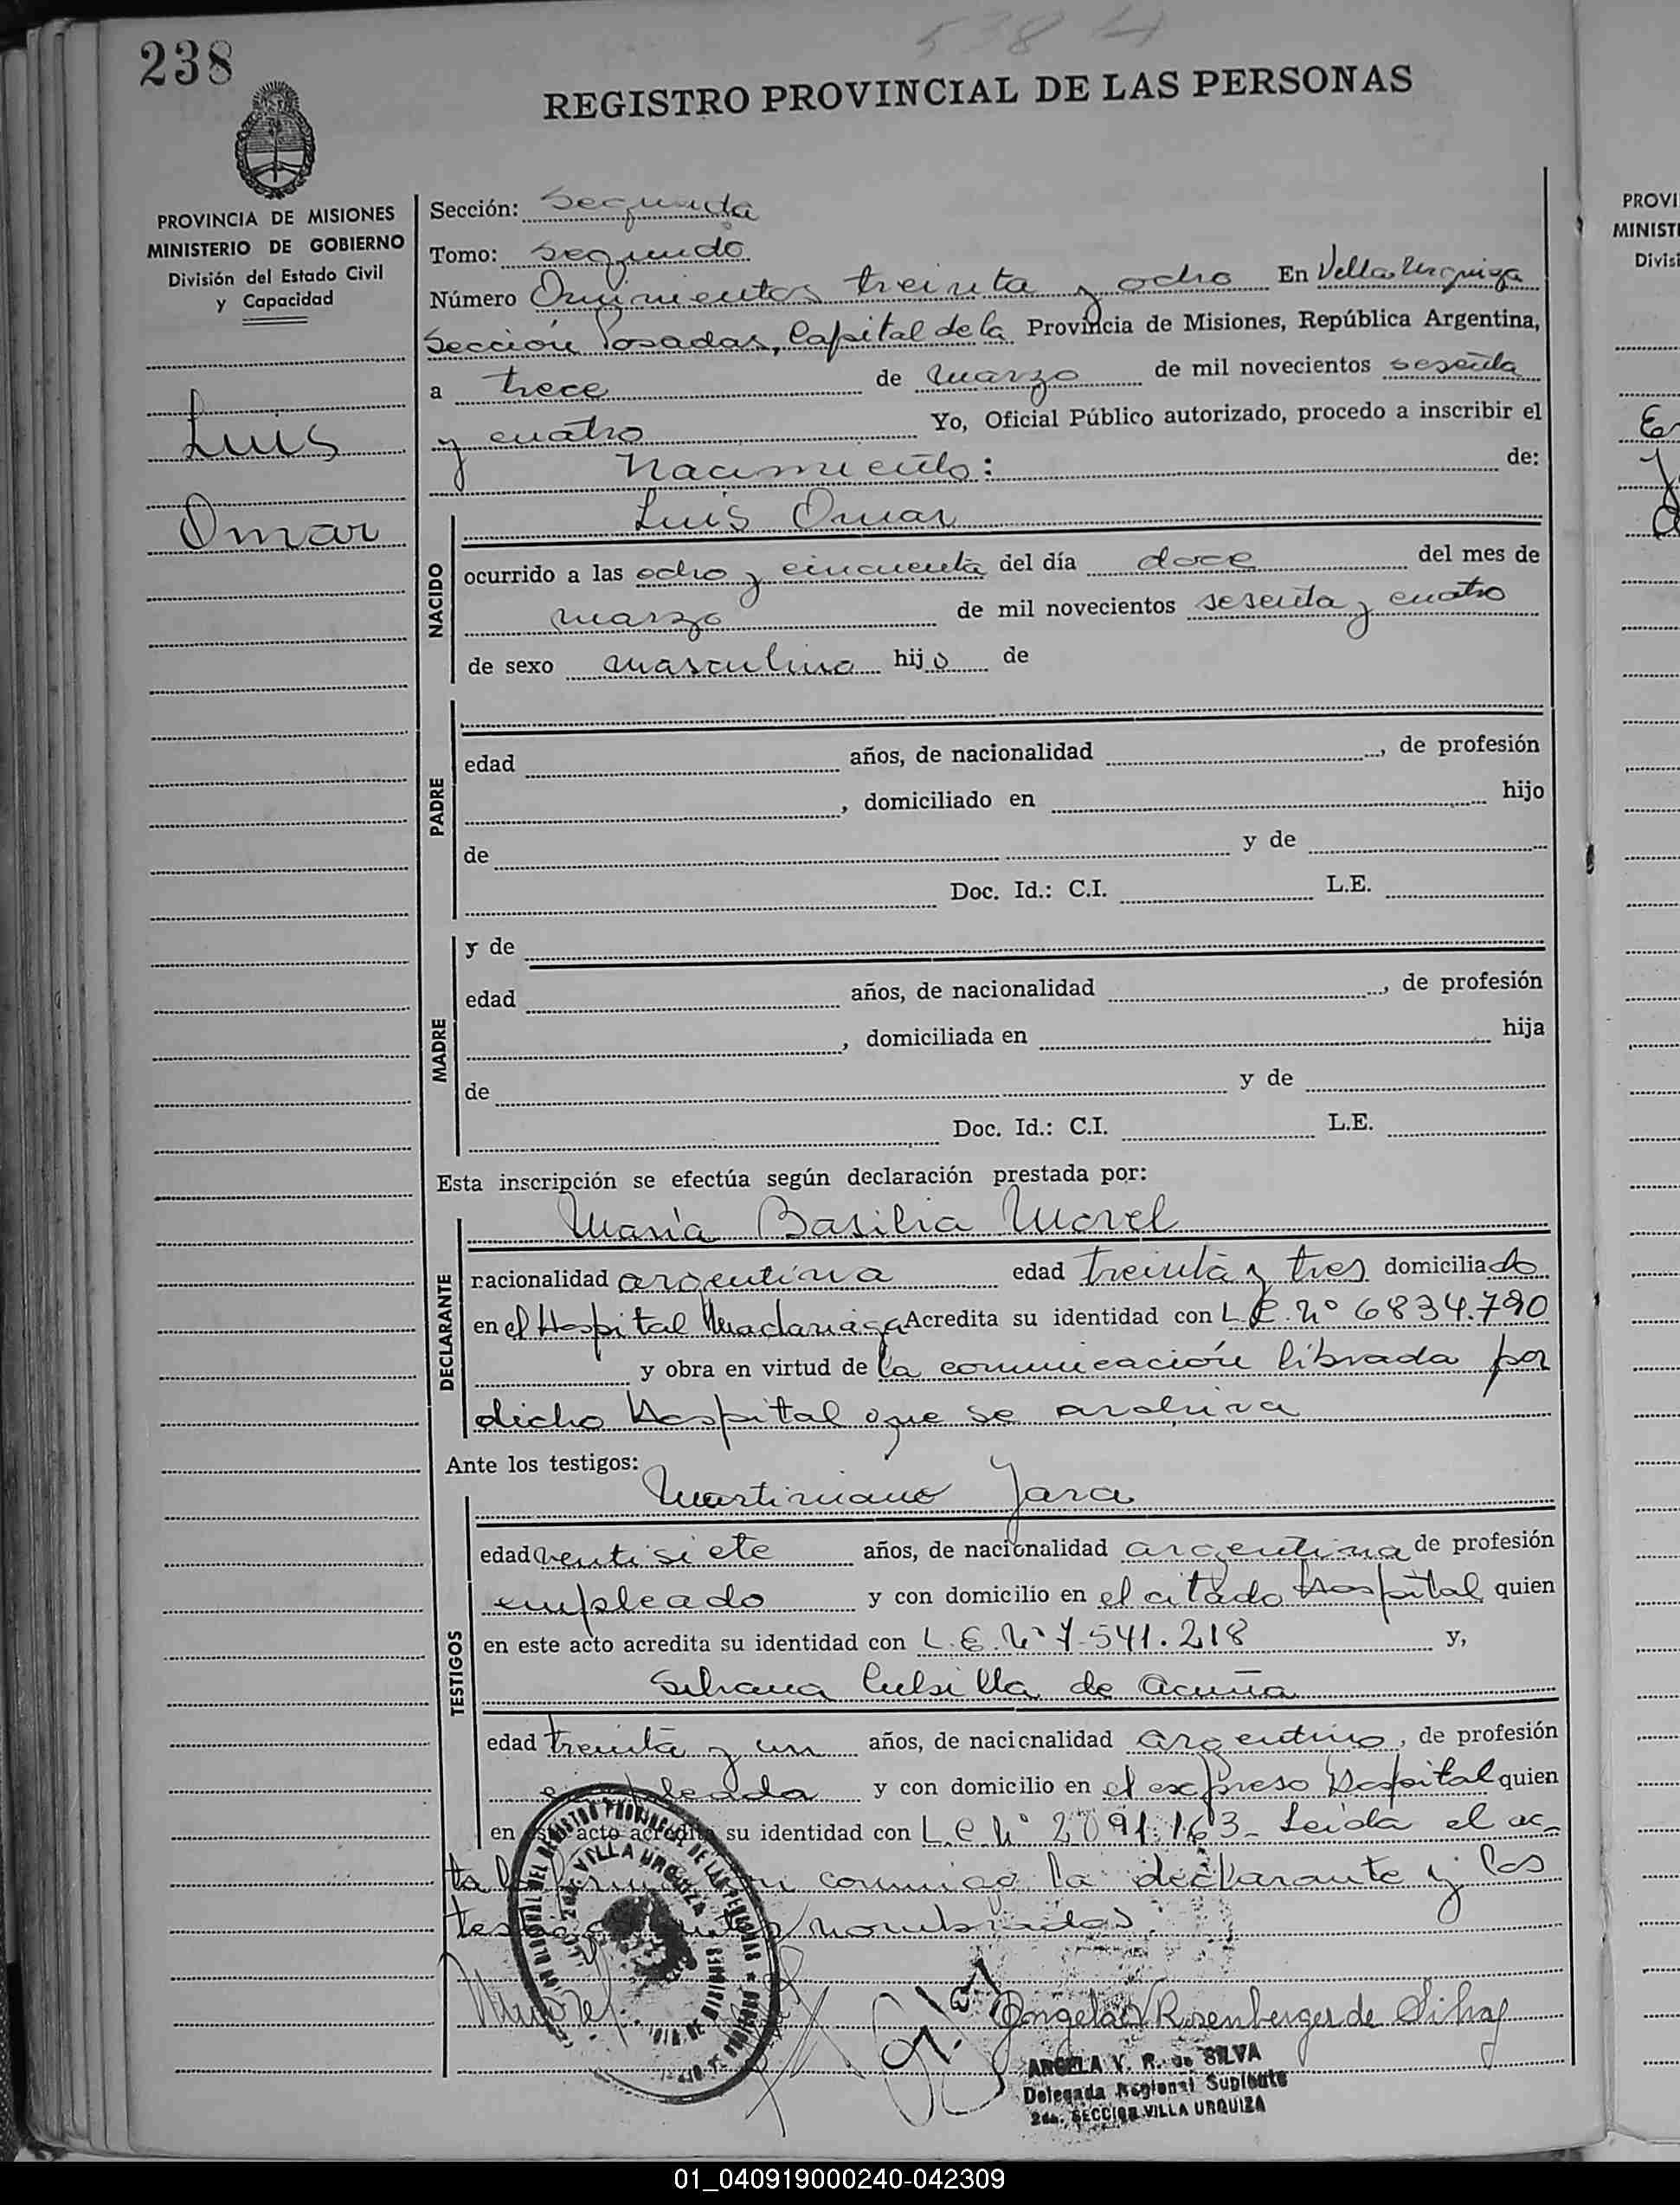 238
538 4
REGISTRO PROVINCIAL DE LAS PERSONAS
PROVINCIA DE MISIONES
MINISTERIO DE GOBIERNO
División del Estado Civil
y Capacidad
Luis
Omar
Sección: Segunda
Tomo: segundo
Número Quinientos treinta y ocho En Villa Urquiza
Sección Posadas, Capital de la Provincia de Misiones, República Argentina,
a trece de marzo de mil novecientos sesenta
y cuatro Yo, Oficial Público autorizado, procedo a inscribir el
Nacimiento: de:
NACIDO
Luis Omar
ocurrido a las ocho y cincuenta del día doce del mes de
marzo de mil novecientos sesenta y cuatro
de sexo masculino hijo de
PADRE
edad años, de nacionalidad , de profesión
, domiciliado en hijo
de y de
Doc. Id.: C.I. L.E.
MADRE
y de
edad años, de nacionalidad , de profesión
, domiciliada en hija
de y de
Doc. Id.: C.I. L.E.
Esta inscripción se efectúa según declaración prestada por:
DECLARANTE
María Basilia Morel
nacionalidad argentina edad treinta y tres domiciliado
en el Hospital Madariaga Acredita su identidad con L.E. Nº 6834.790
y obra en virtud de la comunicación librada por
dicho Hospital que se archiva
Ante los testigos:
TESTIGOS
Martiniano Jara
edad veintisiete años, de nacionalidad argentina de profesión
empleado y con domicilio en el citado Hospital quien
en este acto acredita su identidad con L.E. Nº 7.541.218 y,
Silvana de Acuña
edad treinta y un años, de nacionalidad argentino, de profesión
empleada y con domicilio en el expreso Hospital quien
en este acto acredita su identidad con L.E. Nº 2091.163- Leida el ac-
ta la firman conmigo la declarante y los
testigos nombrados.
Morel
Angela V Rosenberger de Silva
ANGELA V. R. de SILVA
Delegada Regional Suplente
2da. SECCION VILLA URQUIZA
PROVI
MINISTE
Divisi
01_040919000240-042309